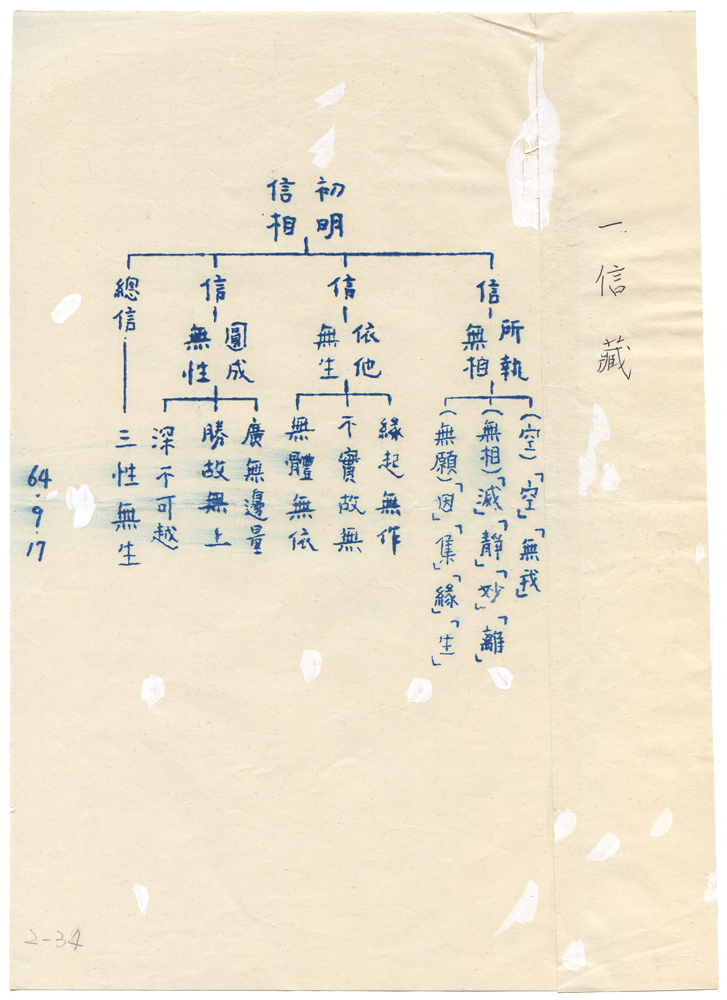 一. 信藏
初明
信相
信
所執
無相
(空)「空」「無我」
(無相)「滅」「靜」「妙」「離」
(無願)「因」「集」「緣」「生」
信
依他
無生
緣起無作
不實故無
無體無依
信
圓成
無性
廣無邊量
勝故無上
深不可越
總信
三性無生
64.9.17
2-34